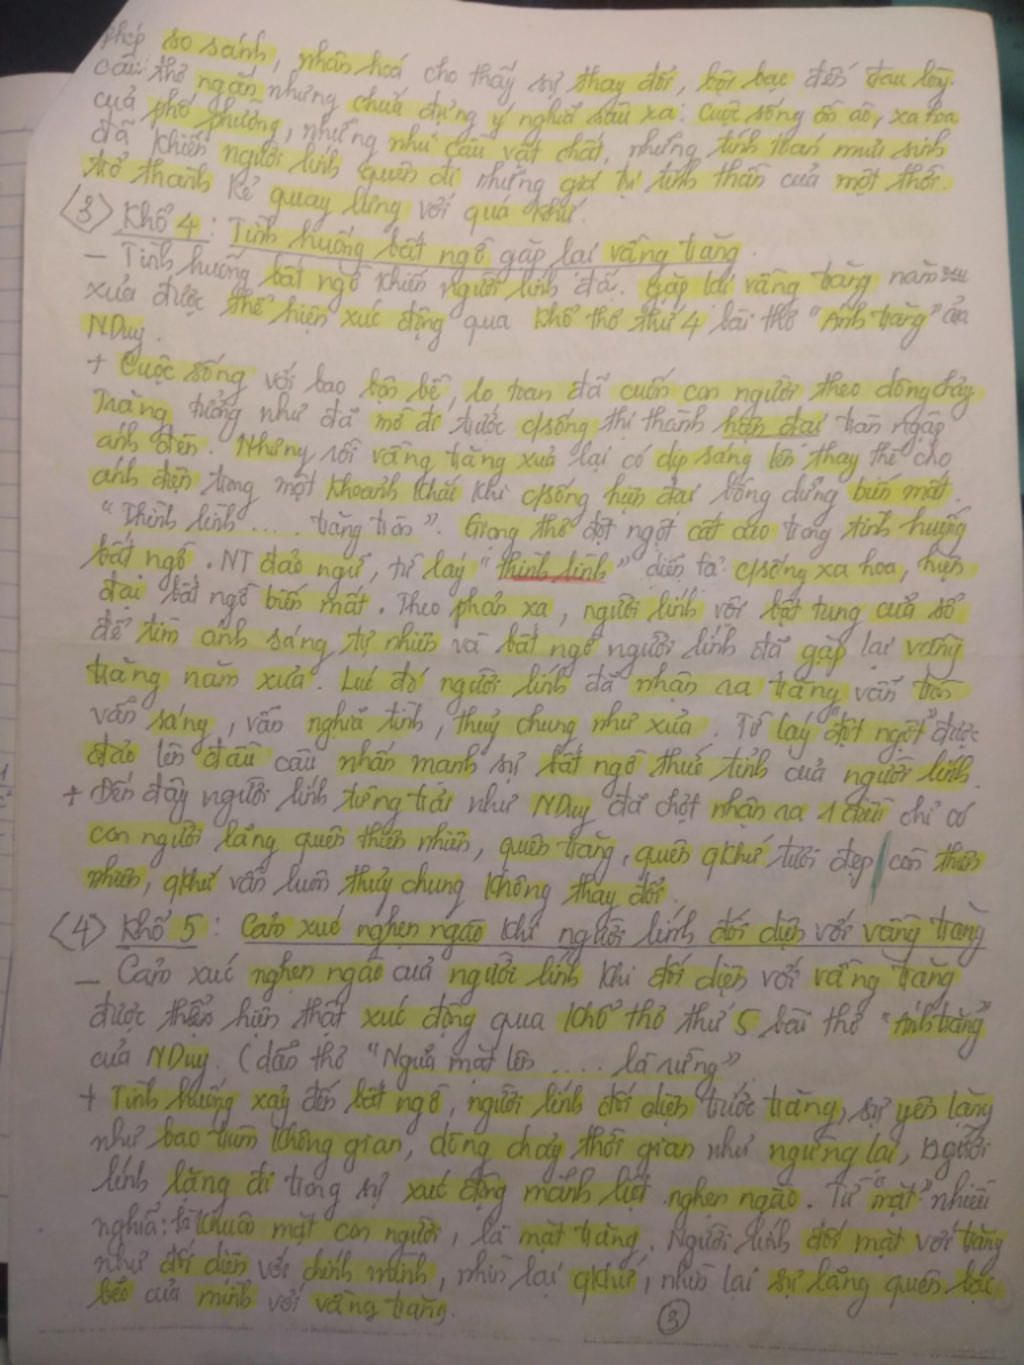 phép so sánh, nhân hoá cho thấy sự thay đổi, bội bạc đến đau lòng.
câu thơ ngắn nhưng chứa đựng ý nghĩa sâu xa: Cuộc sống ồn ào, xa hoa
của phố phường, những nhu cầu vật chất, những tính toán mưu sinh
đã khiến người lính quên đi những giá trị tinh thần của một thời.
trở thành kẻ quay lưng với quá khứ.
<3> Khổ 4: Tình huống bất ngờ gặp lại vầng trăng.
- Tình huống bất ngờ khiến người lính đã gặp lại vầng trăng năm
xưa được thể hiện xúc động qua khổ thơ thứ 4 bài thơ "Ánh trăng" của
NDuy.
+ Cuộc sống với bao bộn bề, lo toan đã cuốn con người theo dòng chảy
Trăng tưởng như đã mờ đi trước c/sống thị thành hiện đại tràn ngập
ánh đèn. Nhưng rồi vầng trăng xưa lại có dịp sáng lên thay thế cho
ánh điện trong một khoảnh khắc khi c/sống hiện đại bỗng dưng biến mất.
"Thình lình .... trăng tròn". Giọng thơ đột ngột cất cao trong tình huống
bất ngờ. NT đảo ngữ, từ láy "thình lình" diễn tả c/sống xa hoa, hiện
đại bất ngờ biến mất. Theo phản xạ, người lính vội bật tung cửa sổ
để tìm ánh sáng tự nhiên và bất ngờ người lính đã gặp lại vầng
trăng năm xưa. Lúc đó người lính đã nhận ra trăng vẫn tròn
vẫn sáng, vẫn nghĩa tình, thuỷ chung như xưa. Từ láy "đột ngột" được
đảo lên đầu câu nhấn mạnh sự bất ngờ thức tỉnh của người lính.
+ Đến đây người lính từng trải như NDuy đã chợt nhận ra 1 điều chỉ có
con người lãng quên thiên nhiên, quên trăng, quên qkhứ tươi đẹp còn thiên
nhiên, qkhứ vẫn luôn thuỷ chung không thay đổi.
<4> Khổ 5: Cảm xúc nghẹn ngào khi người lính đối diện với vầng trăng
- Cảm xúc nghẹn ngào của người lính khi đối diện với vầng trăng
được thể hiện thật xúc động qua khổ thơ thứ 5 bài thơ "Ánh trăng"
của NDuy. (dẫn thơ "Ngửa mặt lên .... là rừng"
+ Tình huống xảy đến bất ngờ, người lính đối diện trước trăng, sự yên lặng
như bao trùm không gian, dòng chảy thời gian như ngừng lại, người
lính lặng đi trong sự xúc động mãnh liệt nghẹn ngào. Từ "mặt" nhiều
nghĩa: là khuôn mặt con người, là mặt trăng. Người lính đối mặt với trăng
như đối diện với chính mình, nhìn lại qkhứ, nhìn lại sự lãng quên bạc
bẽo của mình với vầng trăng.
3